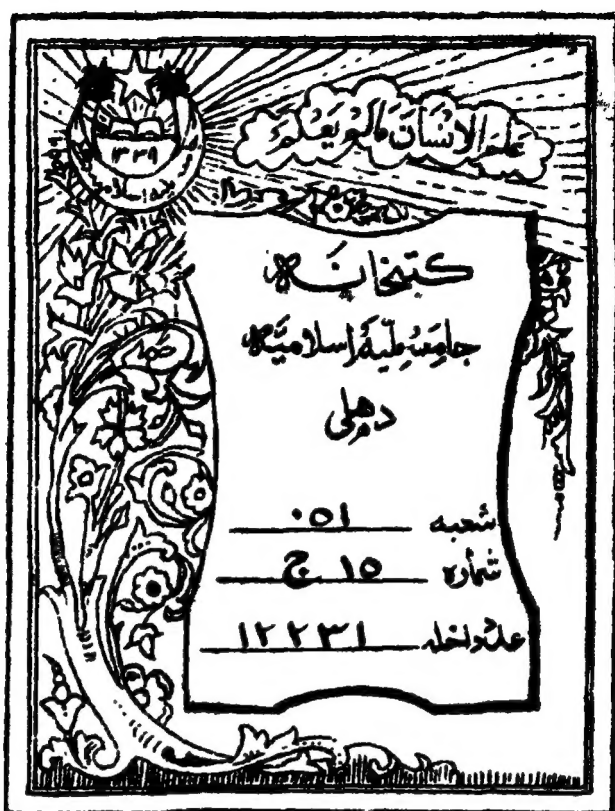 علم الانسان مالم يعلم
۱۳۳۹
کتبخانہ
جامعہ ملیہ اسلامیہ
دہلی
شعبہ ۰۵۱
شمارہ ۱۵ ج
علد داخلہ ۱۲۲۳۱